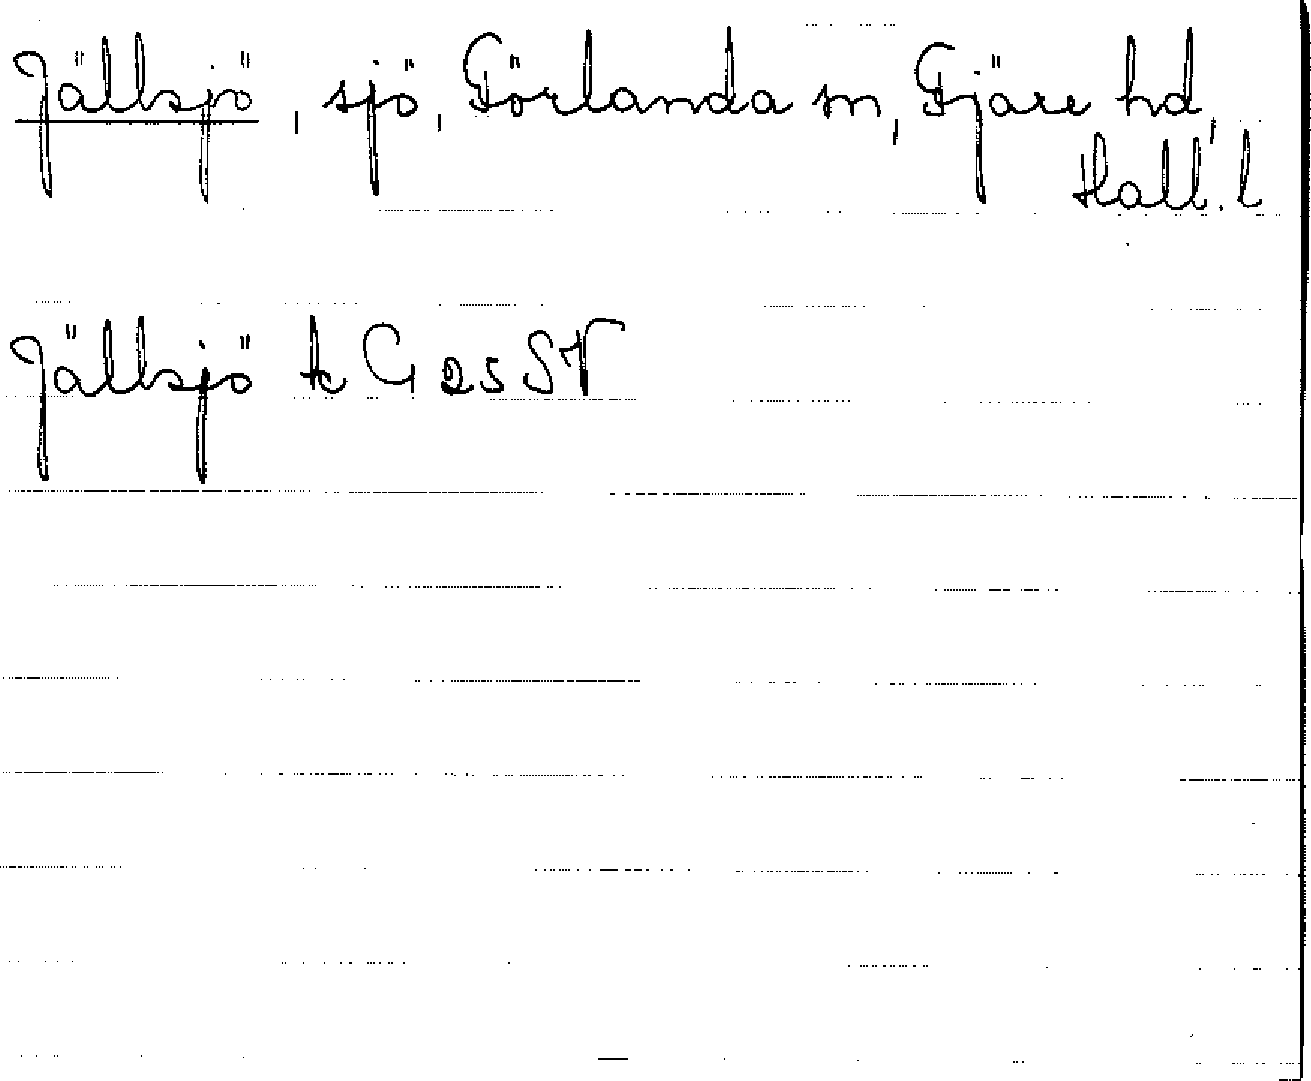 Jällsjö, sjö, Förlanda sn, Fjäre hd,
Hall. l
Jällsjö tc G 25 SV